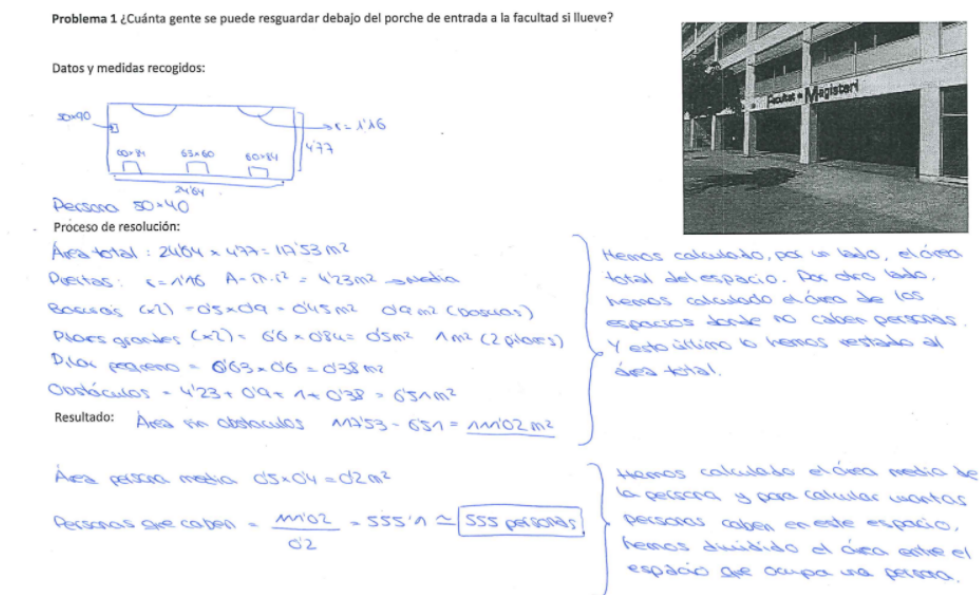 Problema 1 ¿Cuánta gente se puede resguardar debajo del porche de entrada a la facultad si llueve?
Facultat de Magisteri
Datos y medidas recogidos:
50×90
r= 1'16
4'77
60×84
63×60
60×84
24'64
Persona 50×40
Proceso de resolución:
Área total : 24'64 × 4'77 = 117'53 m2
r=1'16 A=π·r² = 4'23m2 → media
Basuras (x2) = 0'5×0'9 = 0'45 m2 0'9 m2 (basuras)
Pilares grandes (x2) = 6'6 × 0'84 = 0'5m2 1 m2 (2 pilares)
Pilar pequeño = 0'63 × 0'6 = 0'38 m2
Obstáculos = 4'23 + 0'9 + 1 + 0'38 = 6'51 m2
Hemos calculado, por un lado, el área
total del espacio. Por otro lado,
hemos calculado el área de los
espacios donde no caben personas.
Y esto último lo hemos restado al
área total.
Resultado: Área sin obstáculos 117'53 - 6'51 = 111'02 m2
Área persona media 0'5×0'4 = 0'2 m2
Personas que caben = 111'02 / 0'2 = 555'1 ≃ 555 personas
Hemos calculado el área media de
la persona y para calcular cuantas
personas caben en este espacio,
hemos dividido el área entre el
espacio que ocupa una persona.